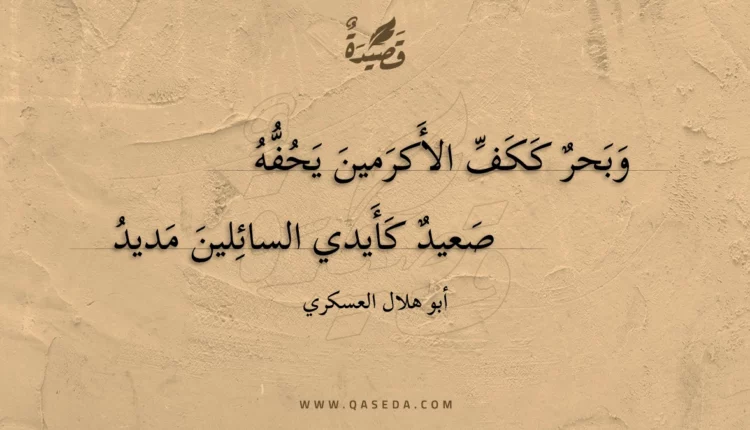 قَصِيدَةٌ
وَبَحرٌ كَكَفِّ الأَكرَمينَ يَحُفُّهُ
صَعيدٌ كَأَيدي السائِلينَ مَديدُ
أبو هلال العسكري
WWW.QASEDA.COM